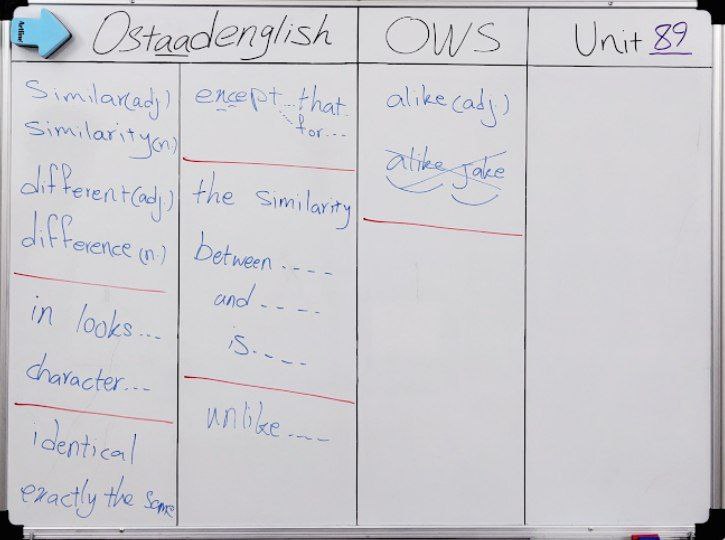 Artline
Ostaadenglish
OWS
Unit 89
Similar(adj)
Similarity(n)
different(adj.)
difference (n.)
in looks...
character...
identical
exactly the same
encept...that.
for....
the similarity
between ....
and ....
is....
unlike ....
alike (adj.)
alike jake